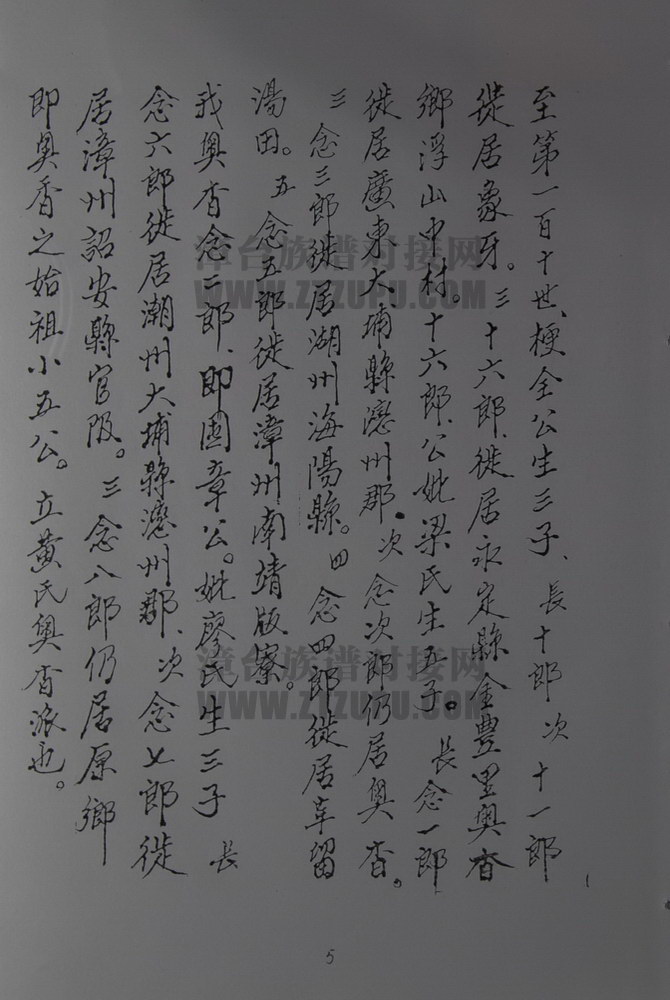 至第一百十世、梗全公生三子、長十郎 次 十一郎
徙居象牙。三十六郎、徙居永定縣金豊里奥杳
鄉浮山中村。十六郎、公妣梁氏生五子。長念一郎
徙居廣東大埔縣濍州郡、次念次郎仍居奥杳。
三念三郎徙居湖州海陽縣。四念四郎徙居丰留
湯田。五念五郎徙居漳州南靖版寮。
我奥杳念二郎、即國章公。妣廖氏生三子 長
念六郎徙居潮州大埔縣濍州郡、次念七郎徙
居漳州詔安縣官陂。三念八郎仍居原鄉
即奥香之始祖小五公。立黃氏奥杳派也。
漳台族谱对接网
WWW.ZTZUPU.COM
漳台族谱对接网
WWW.ZTZUPU.COM
5